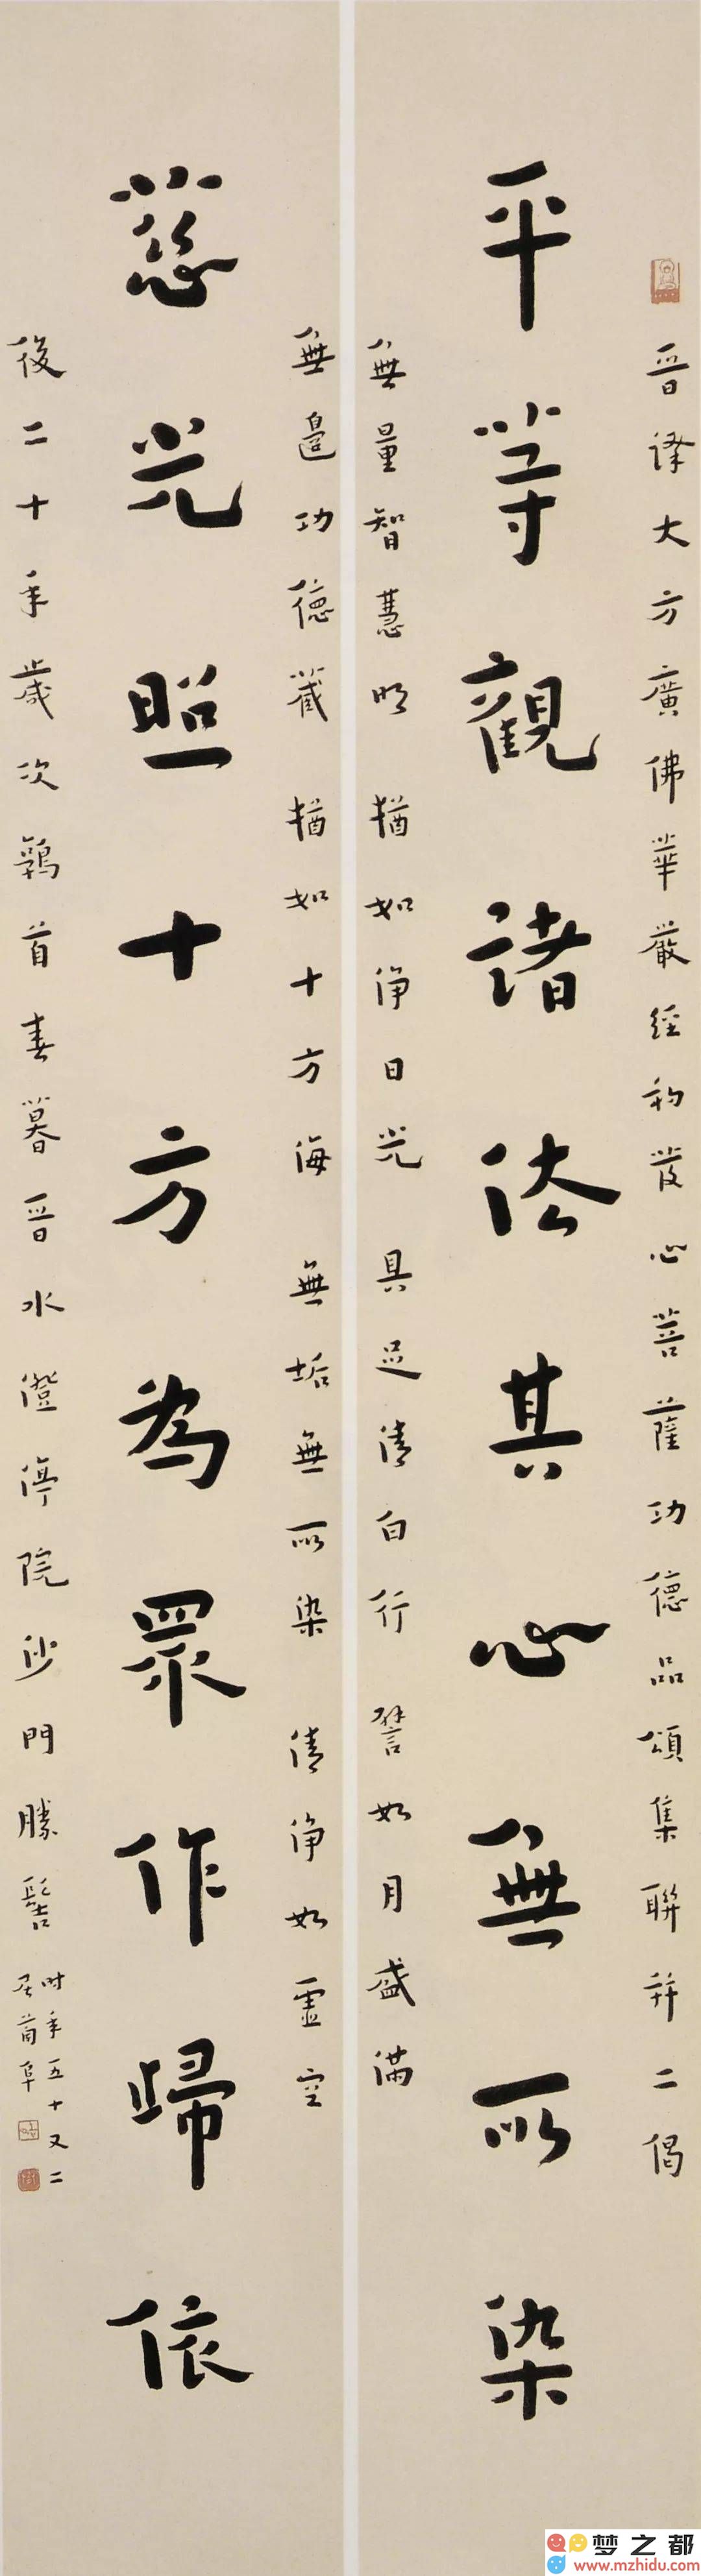 晉譯大方廣佛華嚴經初發心菩薩功德品頌集聯并二偈
平等觀諸法其心無所染
無量智慧明 猶如淨日光 具足清白行 譬如月盛滿
無邊功德藏 猶如十方海 無垢無所染 清淨如虛空
慈光照十方為眾作歸依
後二十年歲次鶉首春暮晉水澄渟院沙門勝髻
時年五十又二
居莆阜
梦之都
www.mzhidu.com